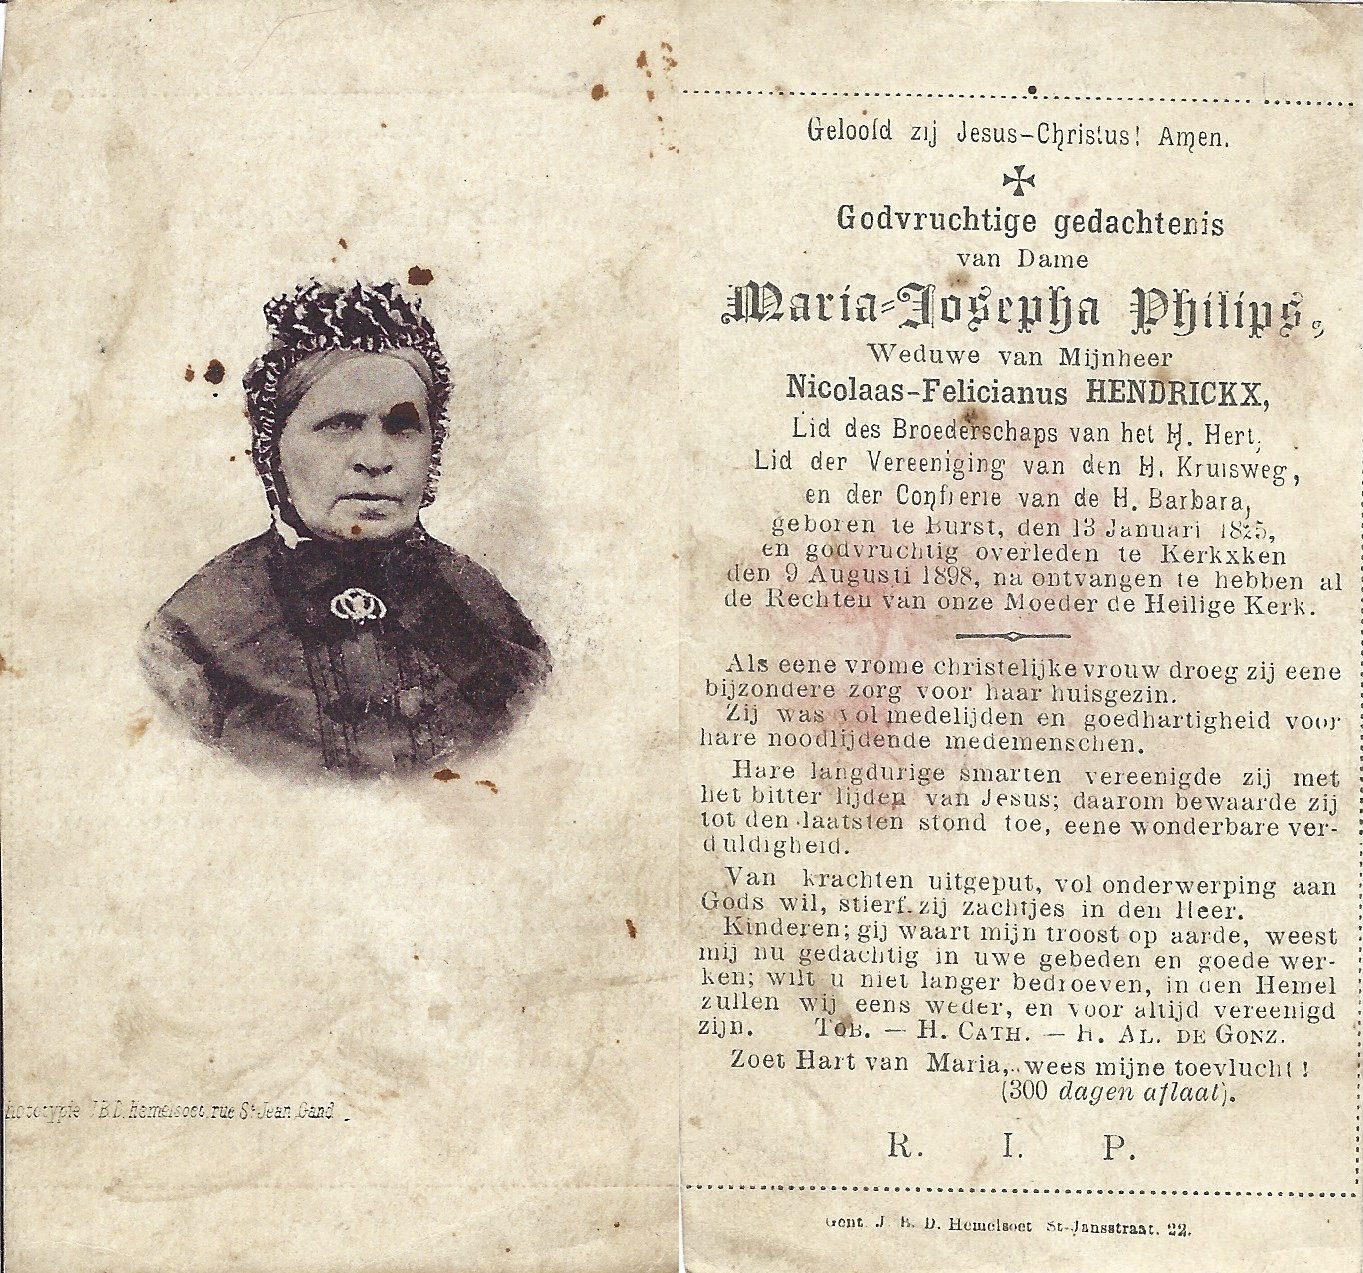 Geloofd zij Jesus-Christus! Amen.
Godvruchtige gedachtenis
van Dame
Maria-Josepha Philips,
Weduwe van Mijnheer
Nicolaas-Felicianus HENDRICKX,
Lid des Broederschaps van het H. Hert,
Lid der Vereeniging van den H. Kruisweg,
en der Confrerie van de H. Barbara,
geboren te Burst, den 13 Januari
en godvruchtig overleden te Kerkxken
den 9 Augusti 1898, na ontvangen te hebben al
de Rechten van onze Moeder de Heilige Kerk.
Als eene vrome christelijke vrouw droeg zij eene
bijzondere zorg voor haar huisgezin.
Zij was vol medelijden en goedhartigheid voor
hare noodlijdende medemenschen.
Hare langdurige smarten vereenigde zij met
het bitter lijden van Jesus; daarom bewaarde zij
tot den laatsten stond toe, eene wonderbare ver-
duldigheid.
Van krachten uitgeput, vol onderwerping aan
Gods wil, stierf zij zachtjes in den Heer.
Kinderen; gij waart mijn troost op aarde, weest
mij nu gedachtig in uwe gebeden en goede wer-
ken; wilt u niet langer bedroeven, in den Hemel
zullen wij eens weder, en voor altijd vereenigd
zijn. TOB. — H. CATH. — H. AL. DE GONZ.
Zoet Hart van Maria, wees mijne toevlucht !
(300 dagen aflaat).
R. I. P.
Gent. J. B. D. Hemelsoet St-Jansstraat. 22.
Phototypie J B D. Hemelsoet rue St Jean Gand